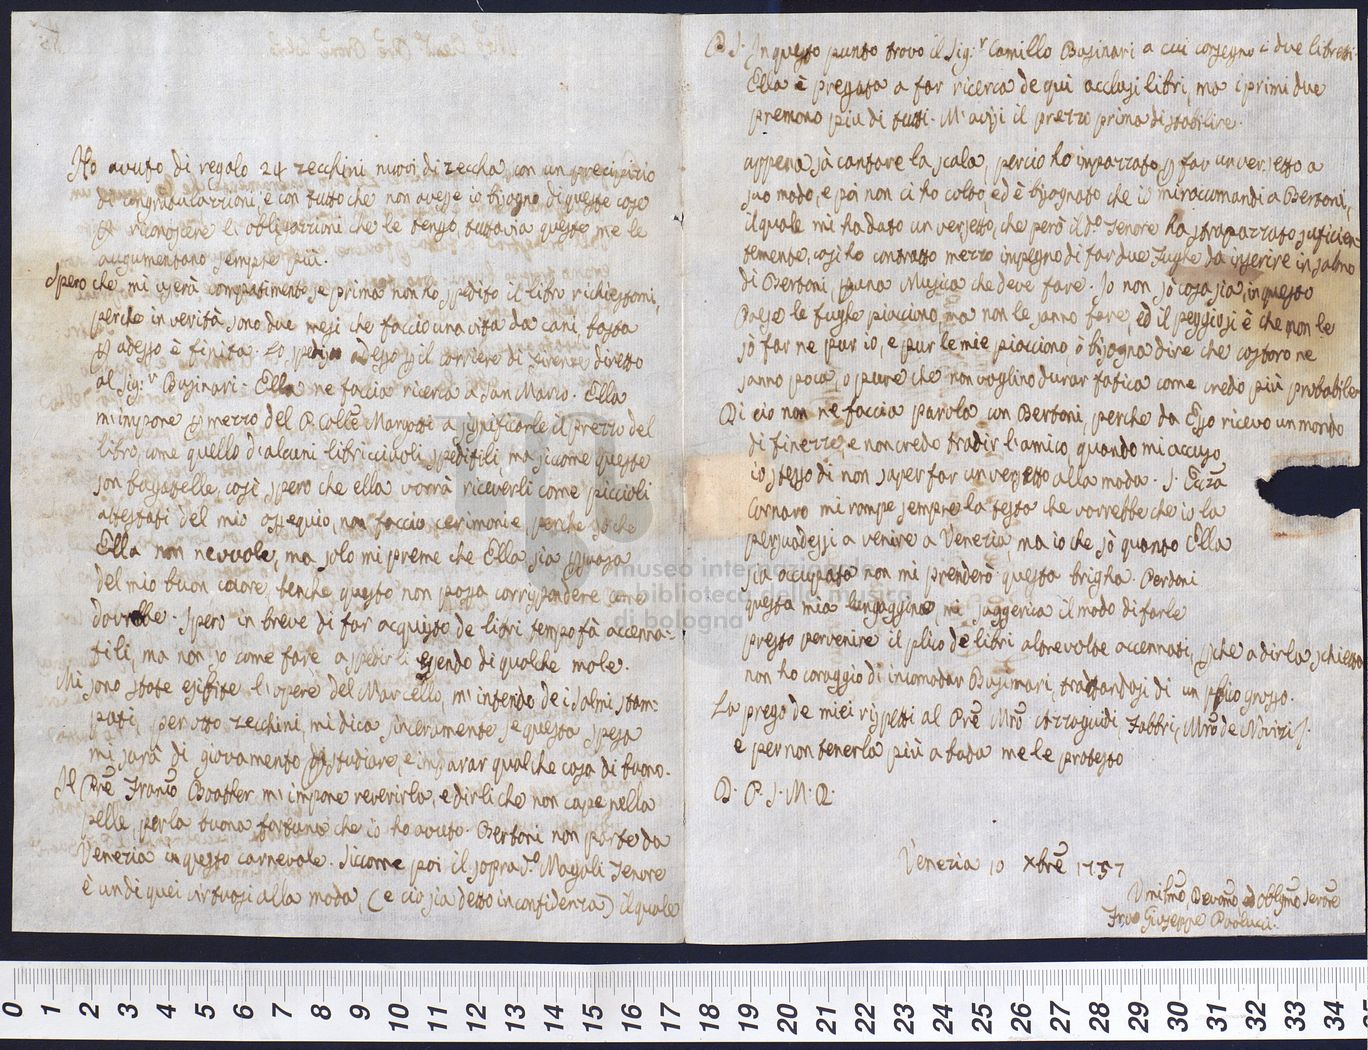 Ho avuto di regalo 24 zecchini nuovi di zecha, con un precipizio
di congratulazzioni, e con tutto che non avesse io bisogno di queste cose
p riconoscere le obligazzioni che le tengo, tuttavia queste me le
augumentano sempre più.
Spero che mi userà compatimento se prima non ho spedito il libro richiestomi,
perche in verità sono due mesi che faccio una vita da cani, basta
p adesso è finita. Lo spedi adesso p il corriere di Firenze, diretto
al Sig.r Businari: Ella ne faccia ricerca a San Marco. Ella
m'impone p mezzo del P. Colle Marotti a significarle il prezzo del
libro, come quello d'alcuni libricciuoli speditili, ma siccome queste
son bagatelle, così spero che ella vorrà riceverli come piccioli
attestati del mio ossequio, non faccio cerimonie perche so che
Ella non ne vuole, ma solo mi preme che Ella sia psuasa
del mio buon cuore, benche questo non possa corrispondere come
dovrebbe. Spero in breve di far acquisto de libri tempo fà accenna-
tili, ma non so come fare a spedirli essendo di qualche mole.
Mi sono state esibite l'opere del Marcello, m'intendo de i salmi stam-
pati, per otto zecchini, mi dica sinceramente se questa spesa
mi sarà di giovamento p studiare, e imparar qualche cosa di buono.
Il Pre Franco Boatter m'impone reverirla, e dirli che non cape nella
pelle per la buona fortuna che io ho avuto. Bertoni non parte da
Venezia in questo carnevale. Siccome poi il sopra do Magali Tenore
è un di quei virtuosi alla moda, (e ciò sia detto in confidenza) il quale
P.S. In questo punto trovo il Sig.r Camillo Businari a cui consegno i due libretti
Ella è pregata a far ricerca de qui acclusi libri, ma i primi due
premono più di tutti. M'avisi il prezzo prima di stabilire.
appena sà cantare la scala, perciò ho impazzato p far un versetto a
suo modo, e poi non ci ho colto, ed è bisognato che io mi racumandi a Bertoni,
il quale mi ha dato un versetto, che però il do Tenore ha strapazzato suficien-
temente, così ho contratto mezzo impegno di far due Fughe da inserire in salmo
di Bertoni, p una Musica che deve fare. Io non so cosa sia, in questo
Paese le fughe piacciono ma non le sanno fare, ed il peggio si è che non le
sò far ne pur io, e pur le mie piacciono, ò bisogna dire che costoro ne
sanno poca, o pure che non voglino durar fatica come credo più probabile
Di ciò non ne faccia parola con Bertoni, perche da Esso ricevo un mondo
di finezze, e non credo tradir l'amico quando mi accuso
io stesso di non saper far un versetto alla moda. S. Ecza
Cornaro mi rompe sempre la testa che vorrebbe che io la
persuadessi a venire a Venezia, ma io che sò quanto Ella
sia occupata non mi prenderò questa briga. Perdoni
questa mia lungaggine, mi suggerisca il modo di farle
presto pervenire il plico de libri altre volte accennati, pche a dirla schietta
non ho coraggio di incomodar Businari, trattandosi di un plico grosso.
La prego de miei rispetti al Pre Mro Azzoguidi, Fabbri, Mro de Novizi S.
e per non tenerla più a bada me le protesto
D. P. S. M. R.
Venezia 10 Xbre 1757
Umilmo Devmo ed obblgmo Servre
Frae Giuseppe Paolucci.